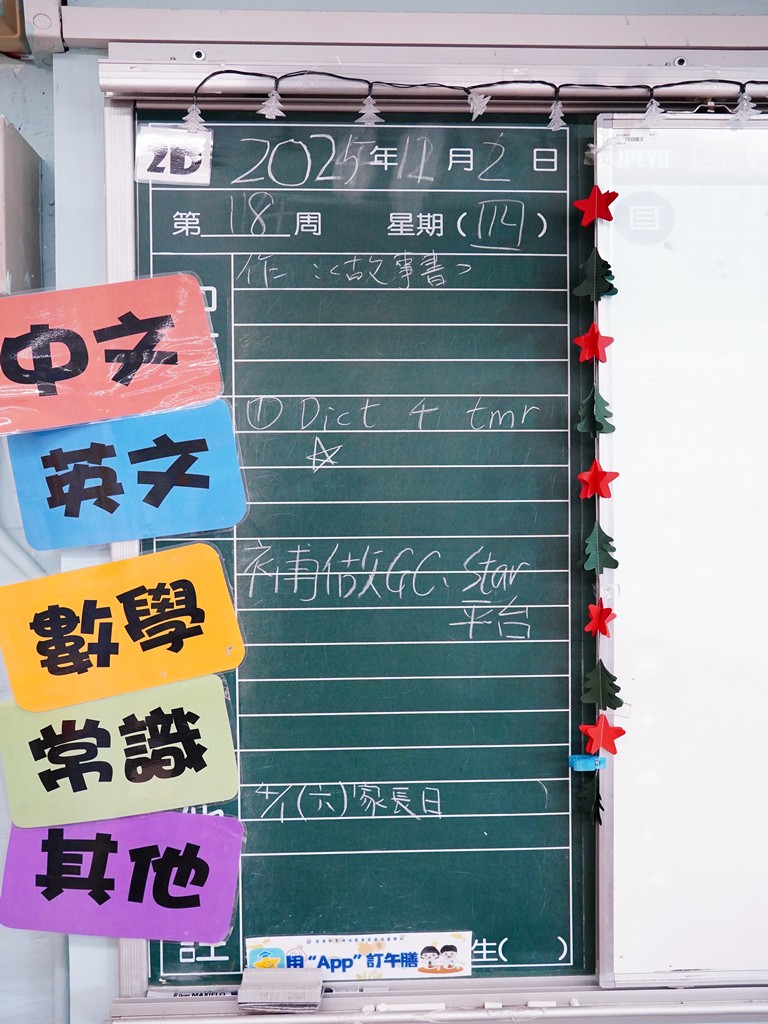 2D 2025年12月2日
第18周 星期(四)
作：《故事書》
中文
① Dict 4 tmr
☆
英文
補做GC、Star
平台
數學
常識
4/1(六)家長日
其他
註
用 “App” 訂午膳
生( )